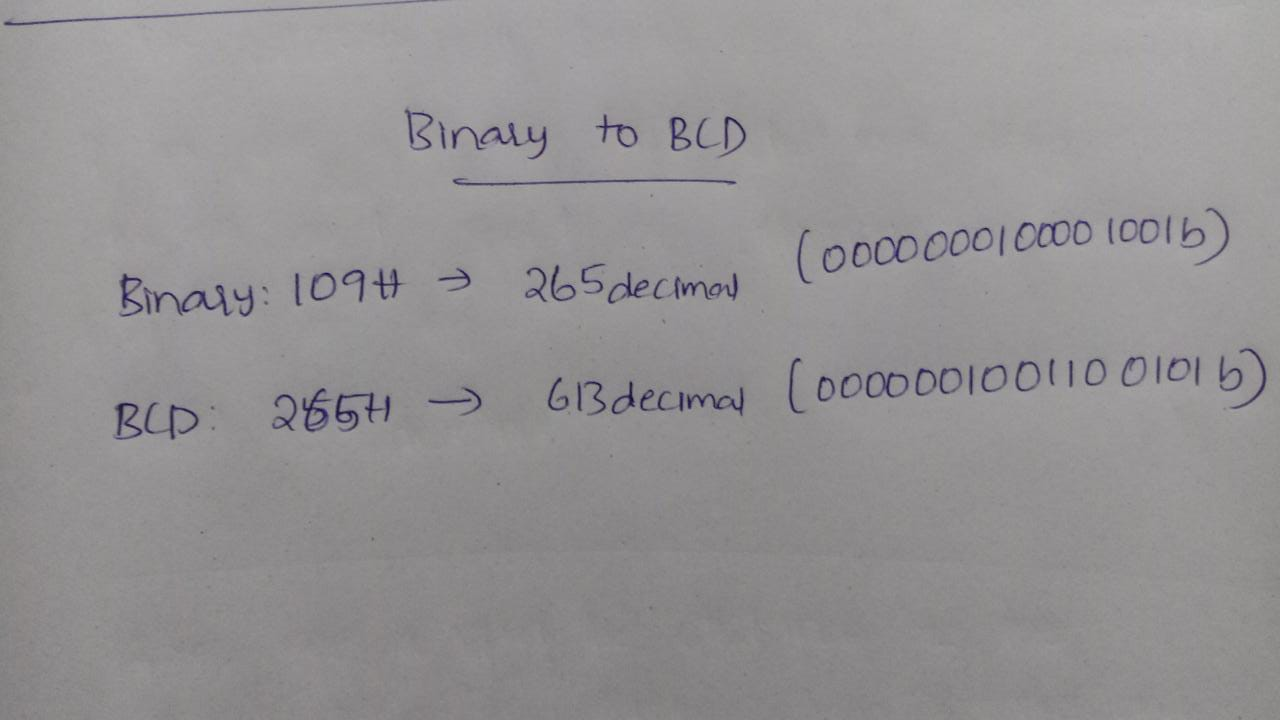 Binary to BCD
Binary: 109H → 265decimal (0000000100001001b)
BCD: 265H → 613decimal (0000001001100101b)